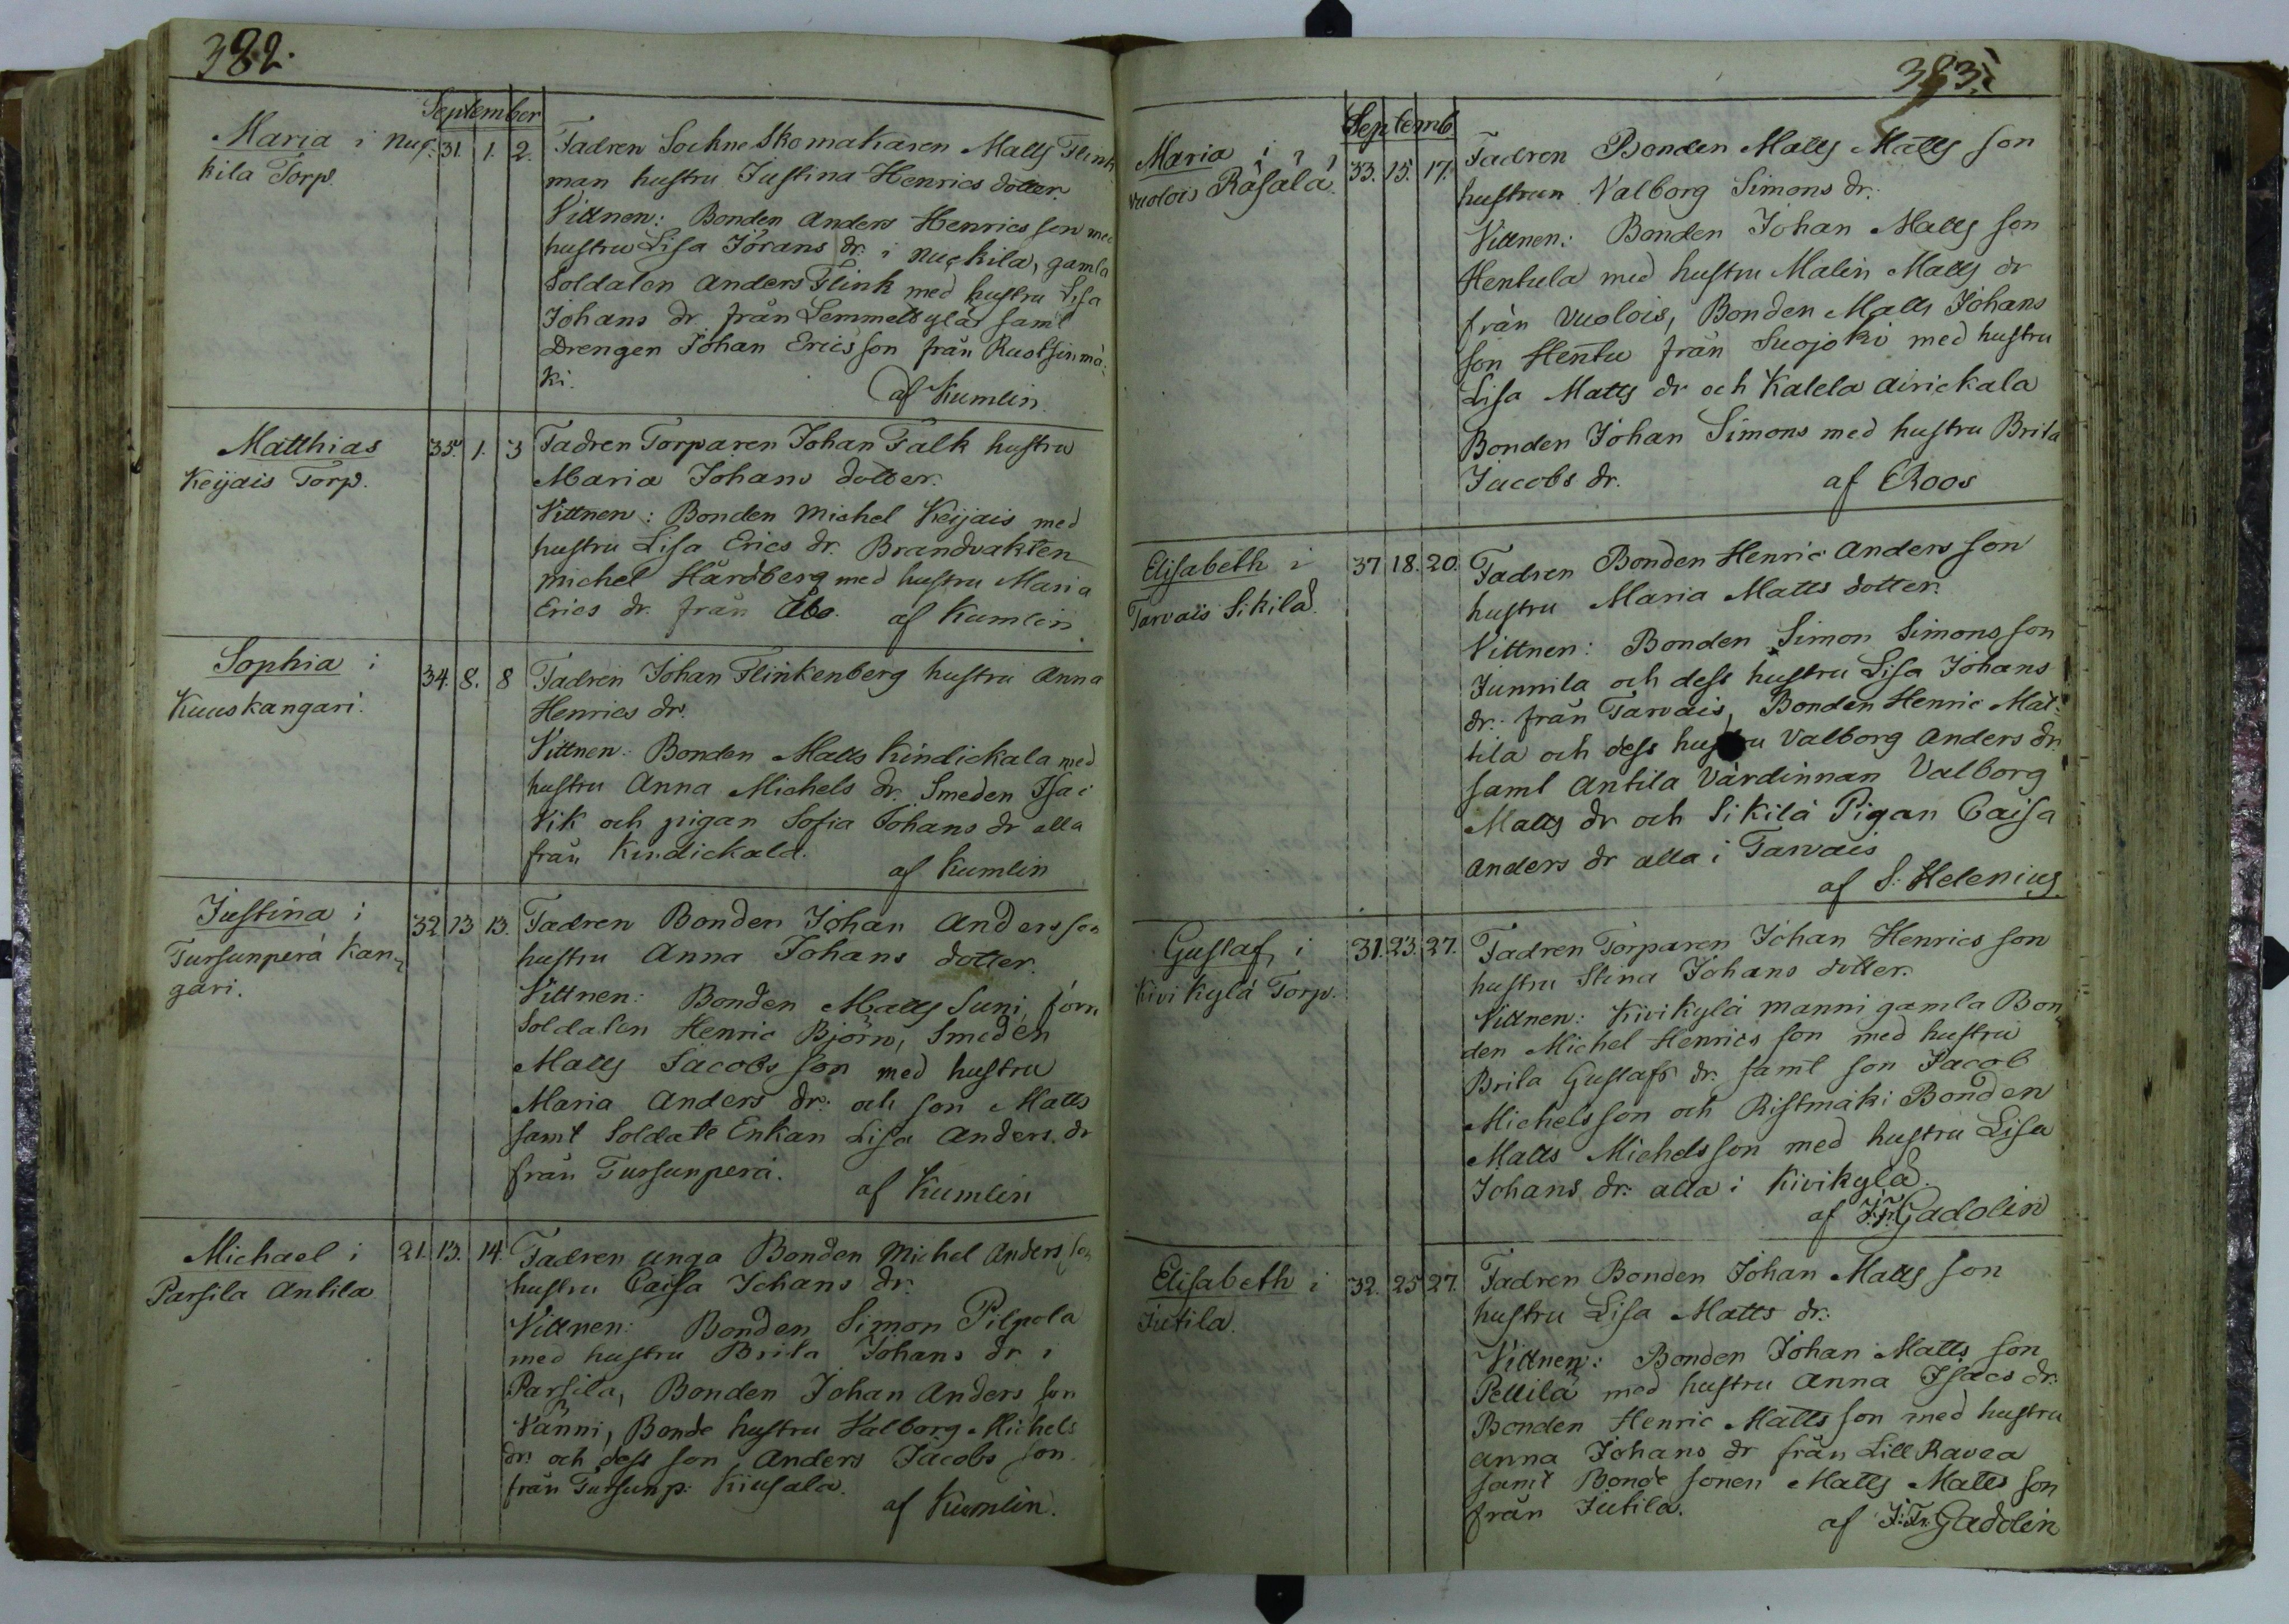 382.
September
Maria i Nuc
kila Torp.
31. 1. 2.
Fadren Sockne Skomakaren Matts Flink
man hustru Justina Henrics dotter.
Vittnen: Bonden Anders Henrics son med
hustru Lisa Jörans dr. i Nuckila, gamla
Soldaten Anders Flink med hustru Lisa
Johans dr från Lemmettylä samt
Drengen Johan Ericsson från Ruotsinmä-
ki.
af Kumlin.
Matthias
Keijais Torp.
35. 1. 3
Fadren Torparen Johan Falk hustru
Maria Johans dotter.
Vittnen: Bonden Michel Keijais med
hustru Lisa Erics dr. Brandvakten
Michel Hårdberg med hustru Maria
Erics dr. från Åbo.
af Kumlin
Sophia i
Kuuskangari.
34. 8. 8
Fadren Johan Flinkenberg hustru Anna
Henrics dr.
Vittnen: Bonden Matts Kindickala med
hustru Anna Michels dr. Smeden Isac
Vik och pigan Sofia Johans dr alla
från Kindickala.
af Kumlin
Justina i
Tursunperä Kan-
gari.
32 13 13.
Fadren Bonden Johan Andersson
hustru Anna Johans dotter.
Vittnen: Bonden Matts Suni, förra
Soldaten Henric Björn, Smeden
Matts Jacobs son med hustru
Maria Anders dr. och son Matts
samt Soldate Enkan Lisa Anders dr
från Tursunperä.
af Kumlin
Michael i
Parsila Antila
21. 13. 14.
Fadren unga Bonden Michel Anders son
hustru Caisa Johans dr.
Vittnen: Bonden Simon Pilpola
med hustru Brita Johans dr i
Parsila, Bonden Johan Anders son
Vänni, Bonde hustru Valborg Michels
dr. och dess son Anders Jacobs son
från Tursunp: Kiusala.
af Kumlin.
383.
Septemb.
Maria i
Vuolois Räsälä.
33. 15. 17.
Fadren Bonden Matts Matts son
hustrun Valborg Simons dr.
Vittnen: Bonden Johan Matts son
Hentula med hustru Malin Matts dr
från Vuolois, Bonden Matts Johans
son Hentu från Suojoki med hustru
Lisa Matts dr och Kalela Airickala
Bonden Johan Simons med hustru Brita
Jacobs dr.
af CRoos
Elisabeth i
Tarvais Sikilä.
37 18. 20.
Fadren Bonden Henric Anders son
hustru Maria Matts dotter.
Vittnen: Bonden Simon Simons son
Junnila och dess hustru Lisa Johans
dr. från Tarvais, Bonden Henric Mat-
tila och dess hustru Valborg Anders dr
samt Antila Värdinnan Valborg
Matts dr och Sikilä Pigan Caisa
Anders dr alla i Tarvais
af S: Helenius.
Gustaf, i
Kivikylä Torp.
31. 23. 27.
Fadren Torparen Johan Henrics son
hustru Stina Johans dotter.
Vittnen: Kivikylä Manni gamla Bon-
den Michel Henrics son med hustru
Brita Gustafs dr. samt son Jacob
Michelsson och Ristmäki Bonden
Matts Michelsson med hustru Lisa
Johans dr. alla i Kivikylä.
af J: Fr: Gadolin
Elisabeth i
Jutila.
32. 25 27.
Fadren Bonden Johan Matts son
hustru Lisa Matts dr.
Vittnen: Bonden Johan Matts son
Pellilä med hustru Anna Isacs dr.
Bonden Henric Matts son med hustru
Anna Johans dr från Lill Ravea
samt Bonde sonen Matts Matts son
från Jutila.
af J: Fr: Gadolin